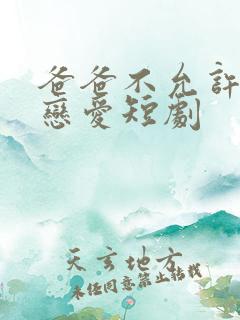 爸爸不允許
戀愛短劇
天玄地方
未經同意禁止轉載